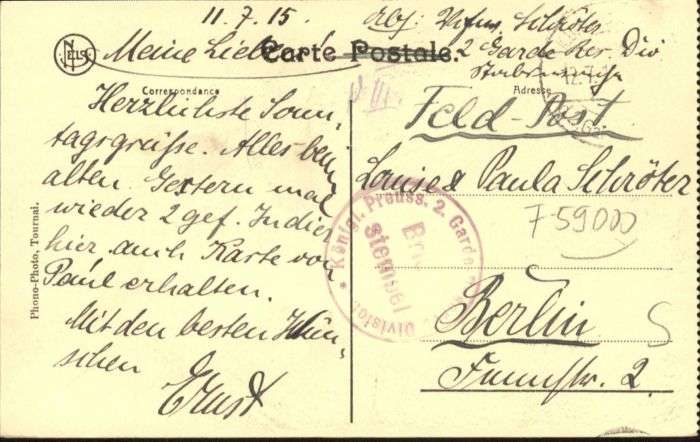 11.7.15.
Abs: Schröter
2 Garde Res Div
NELS
Meine Lieben!
Carte Postale.
Correspondance
Adresse
Herzlichste Sonn-
tagsgrüsse. Alles beim
alten. Gestern mal
wieder 2 gef. Indier
hier auch Karte von
Paul erhalten.
Mit den besten Wün-
schen
Ernst
Feld-Post
Louise & Paula Schröter
759000
Berlin
2.
S
Königl. Preuss. 2. Garde
Division
Briefstempel
Phono-Photo, Tournai.